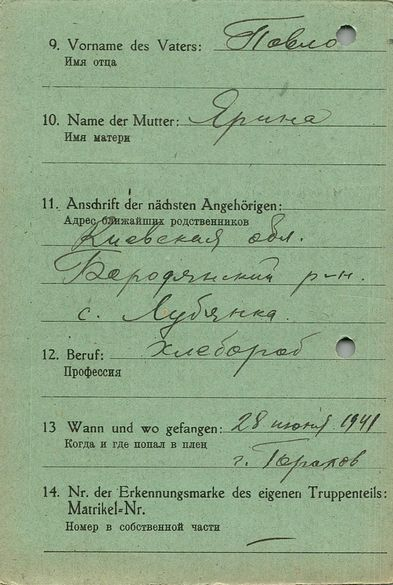 9. Vorname des Vaters: Повло
Имя отца
10. Name der Mutter: Ярина
Имя матери
11. Anschrift der nächsten Angehörigen:
Адрес ближайших родственников
Киевская обл.
Бородянский р-н.
с. Лубянка.
12. Beruf: хлебороб
Профессия
13 Wann und wo gefangen: 28 июня 1941
Когда и где попал в плен
г.
14. Nr. der Erkennungsmarke des eigenen Truppenteils:
Matrikel-Nr.
Номер в собственной части
—